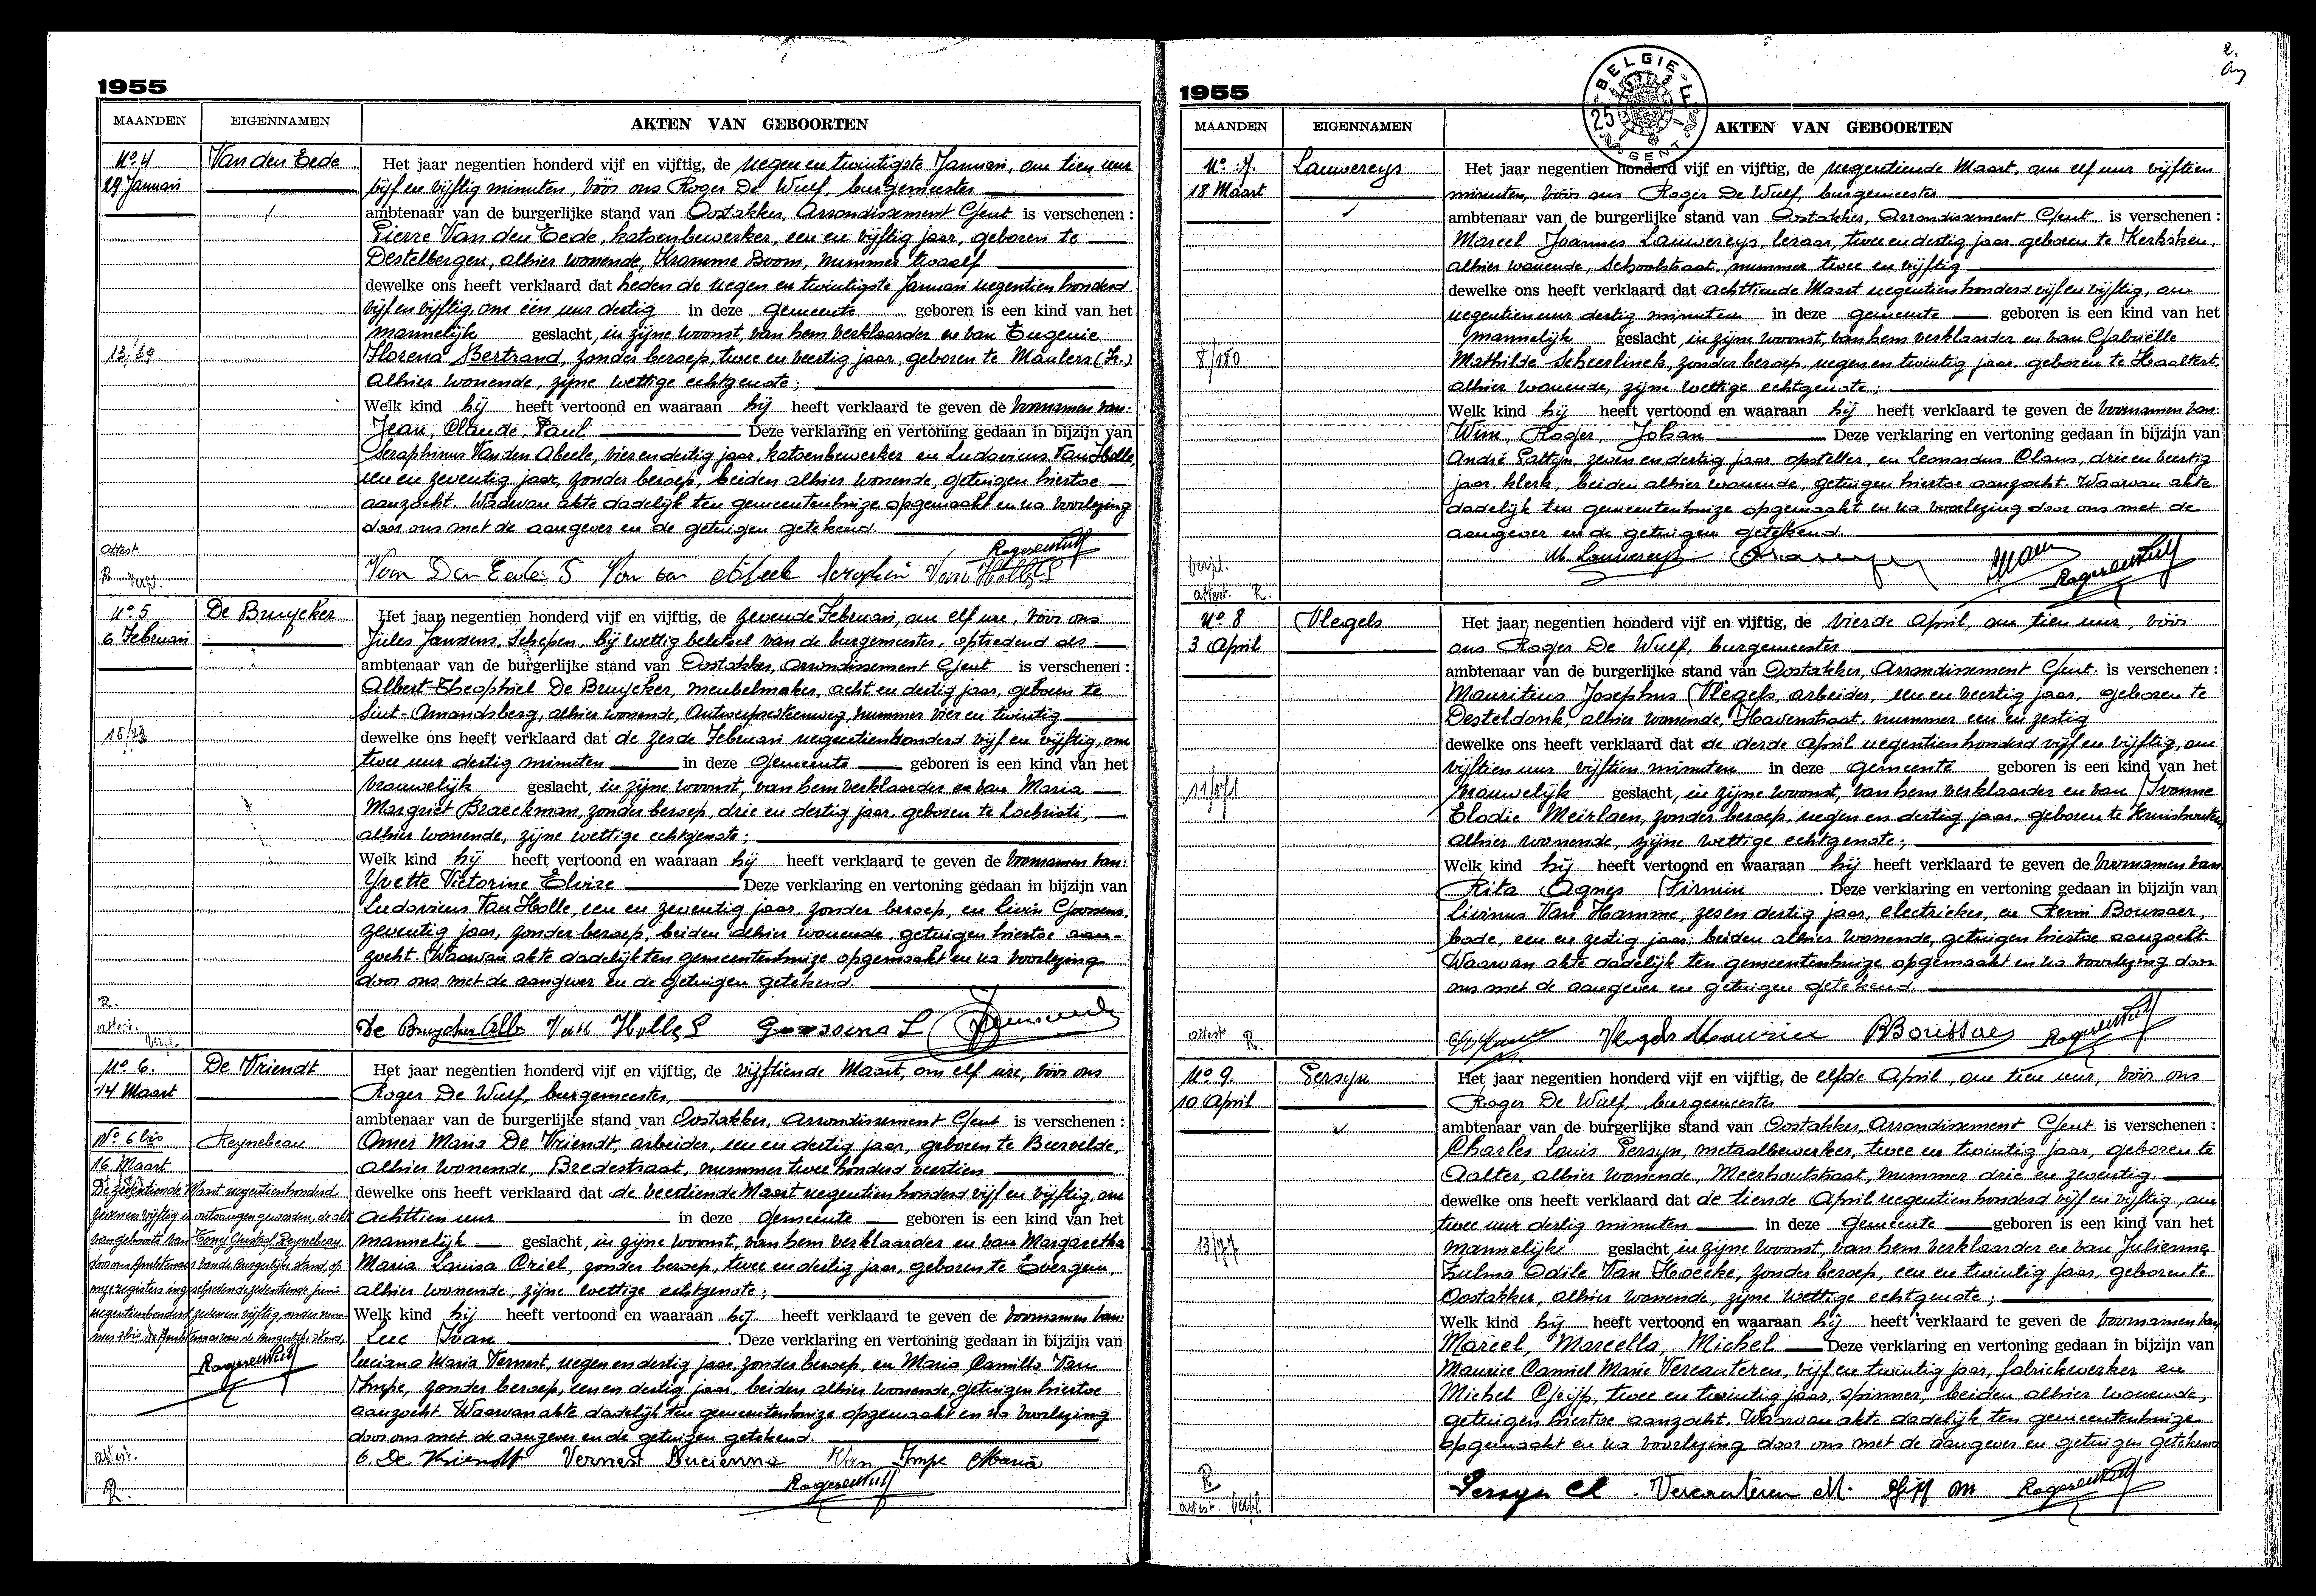 1955
MAANDEN EIGENNAMEN AKTEN VAN GEBOORTEN
No. 4 Van den Eede
29 Januari
Het jaar negentien honderd vijf en vijftig, de negen en twintigste Januari, om tien uur
vijf en vijftig minuten, vóór ons Roger De Wulf, burgemeester
ambtenaar van de burgerlijke stand van Oostakker, Arrondissement Gent is verschenen :
Pierre Van den Eede, katoenbewerker, een en vijftig jaar, geboren te
Destelbergen, alhier wonende, Kromme Boom, nummer twaalf
dewelke ons heeft verklaard dat heden de negen en twintigste Januari negentien honderd
vijf en vijftig, om één uur dertig in deze gemeente geboren is een kind van het
mannelijk geslacht, in zijne woonst, van hem verklaarder en van Eugenie
13/69
Florena Bertrand, zonder beroep, twee en veertig jaar, geboren te Maulers (Fr.)
alhier wonende, zijne wettige echtgenote ;
Welk kind hij heeft vertoond en waaraan hij heeft verklaard te geven de voornamen van:
Jean, Claude, Paul Deze verklaring en vertoning gedaan in bijzijn van
Seraphinus Van den Abeele, vier en dertig jaar, katoenbewerker en Ludovicus Van Holle,
een en zeventig jaar, zonder beroep, beiden alhier wonende, getuigen hiertoe
aanzocht. Waarvan akte dadelijk ten gemeentenhuize opgemaakt en na voorlezing
door ons met de aangever en de getuigen getekend.
attest.
R. verpl.
Van Den Eede P Van den Abeele Seraphin Van Holle L Roger De Wulf
No. 5 De Bruycker
6 Februari
Het jaar negentien honderd vijf en vijftig, de zevende Februari, om elf ure, vóór ons
Jules Janssens, Schepen, bij wettig beletsel van de burgemeester, optredend als
ambtenaar van de burgerlijke stand van Oostakker, Arrondissement Gent is verschenen :
Albert-Theophiel De Bruycker, meubelmaker, acht en dertig jaar, geboren te
Sint-Amandsberg, alhier wonende, Antwerpsesteenweg, nummer vier en twintig
15/73
dewelke ons heeft verklaard dat de zesde Februari negentienhonderd vijf en vijftig, om
twee uur dertig minuten in deze gemeente geboren is een kind van het
vrouwelijk geslacht, in zijne woonst, van hem verklaarder en van Maria
Margriet Braeckman, zonder beroep, drie en dertig jaar, geboren te Lochristi,
alhier wonende, zijne wettige echtgenote ;
Welk kind hij heeft vertoond en waaraan hij heeft verklaard te geven de voornamen van:
Yvette Victorine Elvire Deze verklaring en vertoning gedaan in bijzijn van
Ludovicus Van Holle, een en zeventig jaar, zonder beroep, en Livin Goossens,
zeventig jaar, zonder beroep, beiden alhier wonende, getuigen hiertoe aan-
zocht. Waarvan akte dadelijk ten gemeentenhuize opgemaakt en na voorlezing
door ons met de aangever en de getuigen getekend.
R.
attest.
verpl.
De Bruycker Alb Van Holle L Goossens L
No. 6. De Vriendt
14 Maart
Het jaar negentien honderd vijf en vijftig, de vijftiende Maart, om elf ure, vóór ons
Roger De Wulf, burgemeester,
ambtenaar van de burgerlijke stand van Oostakker, Arrondissement Gent is verschenen :
Omer Maria De Vriendt, arbeider, een en dertig jaar, geboren te Beervelde,
alhier wonende, Bredestraat, nummer twee honderd veertien
dewelke ons heeft verklaard dat de veertiende Maart negentien honderd vijf en vijftig, om
achttien uur in deze gemeente geboren is een kind van het
mannelijk geslacht, in zijne woonst, van hem verklaarder en van Margaretha
Maria Louisa Criel, zonder beroep, twee en dertig jaar, geboren te Evergem,
alhier wonende, zijne wettige echtgenote ;
Welk kind hij heeft vertoond en waaraan hij heeft verklaard te geven de voornamen van:
Luc Ivan Deze verklaring en vertoning gedaan in bijzijn van
Luciana Maria Vernest, negen en dertig jaar, zonder beroep, en Maria Camilla Van
Impe, zonder beroep, een en dertig jaar, beiden alhier wonende, getuigen hiertoe
aanzocht. Waarvan akte dadelijk ten gemeentenhuize opgemaakt en na voorlezing
door ons met de aangever en de getuigen getekend.
No 6 bis Reynebeau
16 Maart
De zeventiende Maart negentienhonderd
zeven en vijftig is ontvangen geworden, de akte
van geboorte van Reynebeau
door ons Ambtenaar van de burgerlijke stand, op
onze registers ingeschreven de zeventiende juni
negentienhonderd zeven en vijftig onder num-
mer bis De Ambtenaar van de burgerlijke stand,
Roger De Wulf
attest.
R.
O. De Vriendt Vernest Lucienne Van Impe Maria
Roger De Wulf
2.
1955
BELGIE F 25 GENT
MAANDEN EIGENNAMEN AKTEN VAN GEBOORTEN
No. 7. Lauwereys
18 Maart
Het jaar negentien honderd vijf en vijftig, de negentiende Maart, om elf uur vijftien
minuten, vóór ons Roger De Wulf, burgemeester
ambtenaar van de burgerlijke stand van Oostakker, Arrondissement Gent, is verschenen :
Marcel Joannes Lauwereys, leraar, twee en dertig jaar, geboren te Kerksken,
alhier wonende, Schoolstraat, nummer twee en vijftig
dewelke ons heeft verklaard dat achttiende Maart negentien honderd vijf en vijftig, om
negentien uur dertig minuten in deze gemeente geboren is een kind van het
mannelijk geslacht, in zijne woonst, van hem verklaarder en van Gabriëlle
8/180
Mathilde Scheerlinck, zonder beroep, negen en twintig jaar, geboren te Haaltert,
alhier wonende, zijne wettige echtgenote ;
Welk kind hij heeft vertoond en waaraan hij heeft verklaard te geven de voornamen van:
Wim, Roger, Johan Deze verklaring en vertoning gedaan in bijzijn van
André Pattyn, zeven en dertig jaar, opsteller, en Leonardus Claus, drie en veertig
jaar, klerk, beiden alhier wonende, getuigen hiertoe aanzocht. Waarvan akte
dadelijk ten gemeentenhuize opgemaakt en na voorlezing door ons met de
aangever en de getuigen getekend.
verpl.
attest. R.
M. Lauwereys Roger De Wulf
No. 8 Vlegels
3 April
Het jaar negentien honderd vijf en vijftig, de vierde April, om tien uur, vóór
ons Roger De Wulf, burgemeester
ambtenaar van de burgerlijke stand van Oostakker, Arrondissement Gent is verschenen :
Mauritius Josephus Vlegels, arbeider, een en veertig jaar, geboren te
Desteldonk, alhier wonende, Havenstraat, nummer een en zestig
dewelke ons heeft verklaard dat de derde April negentien honderd vijf en vijftig, om
vijftien uur vijftien minuten in deze gemeente geboren is een kind van het
vrouwelijk geslacht, in zijne woonst, van hem verklaarder en van Ivonne
Elodie Meirlaen, zonder beroep, negen en dertig jaar, geboren te Kruishoutem
alhier wonende, zijne wettige echtgenote ;
Welk kind hij heeft vertoond en waaraan hij heeft verklaard te geven de voornamen van
Rita Agnes Firmin . Deze verklaring en vertoning gedaan in bijzijn van
Livinus Van Hamme, zes en dertig jaar, electrieker, en Remi
bode, een en zestig jaar, beiden alhier wonende, getuigen hiertoe aanzocht.
Waarvan akte dadelijk ten gemeentenhuize opgemaakt en na voorlezing door
ons met de aangever en getuigen getekend.
attest R.
Vlegels Maurice Roger De Wulf
No 9. Persyn
10 April
Het jaar negentien honderd vijf en vijftig, de elfde April, om tien uur, vóór ons
Roger De Wulf, burgemeester
ambtenaar van de burgerlijke stand van Oostakker, Arrondissement Gent is verschenen :
Charles Louis Persyn, metaalbewerker, twee en twintig jaar, geboren te
Aalter, alhier wonende, Meerhoutstraat, nummer drie en zeventig.
dewelke ons heeft verklaard dat de tiende April negentienhonderd vijf en vijftig, om
twee uur dertig minuten in deze gemeente geboren is een kind van het
13/77
mannelijk geslacht, in zijne woonst, van hem verklaarder en van Julienne
Zulma Odile Van Hoecke, zonder beroep, een en twintig jaar, geboren te
Oostakker, alhier wonende, zijne wettige echtgenote ;
Welk kind hij heeft vertoond en waaraan hij heeft verklaard te geven de voornamen van
Marcel, Marcella, Michel Deze verklaring en vertoning gedaan in bijzijn van
Maurice Camiel Marie Vercauteren, vijf en twintig jaar, fabriekwerker en
Michel Gijp, twee en twintig jaar, spinner, beiden alhier wonende,
getuigen hiertoe aanzocht. Waarvan akte dadelijk ten gemeentenhuize
opgemaakt en na voorlezing door ons met de aangever en getuigen getekend
R
attest verpl.
Persyn Ch. Vercauteren M. Roger De Wulf